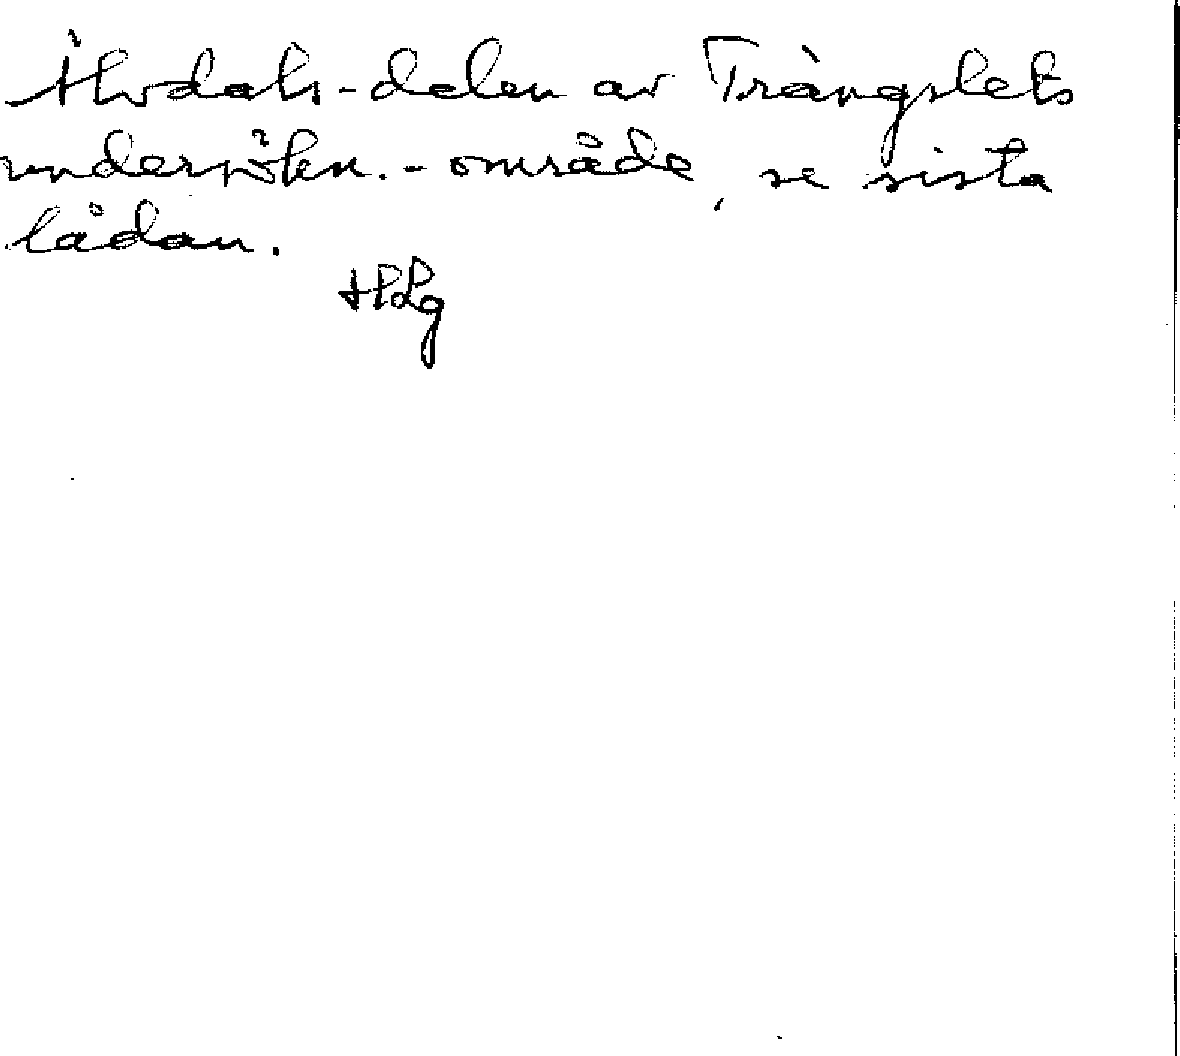 Älvdals-delen av Trängslets
undersökn.-område, se sista
lådan.